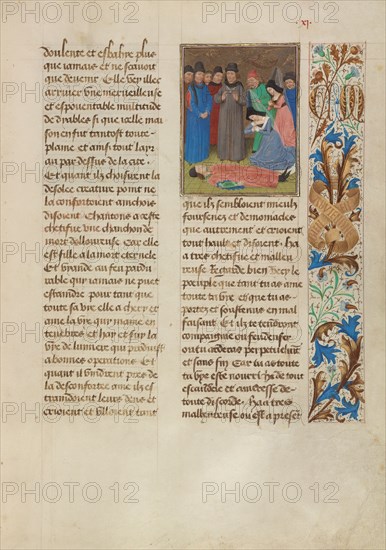 .xj.
doulente et esbahye plus
que iamais et ne scavoit
que devenir Et elle veyt illec
arriver une merveilleuse
et espoventable multitude
de dyables si que icelle mai
son en fut tantost toute
plaine et ainsi tout lair
au par dessus de la cite.
Et quant ilz choisirent la
desolee creature point ne
la confortoient ainchois
disoient Chantons a ceste
chetifve une chanchon de
mort dolloureuse Car elle
est fille a la mort eternele
Et viande au feu pardu
rable qui iamais ne puet
estaindre pour tant que
toute sa vye elle a chery et
ame la vye qui maine en
tenebres et hay et fuy la
vye de lumiere qui
a bonnes operations Et
quant ilz vindrent pres de
la desconfortee ame ilz es
traindoient leurs dens et
crioient et ulloient tant
que ilz sembloient mieulx
foursenez et demoniacles
que autrement et crioient
tout hault et disoient. Ha
a tres chetifve et malleu
reuse Regarde bien Vecy le
pocuple que tant tu as ame
toute ta vye et que tu as
portez et soustenus en mal
faisant Et ilz te tendront
compaignie ou feu denfer
ou tu arderas perpetuelement
et sans fin Car tu as toute
ta vye este nourrice de tout
escandele et amasse de
toute discorde. Haa tres
malleureuse ou est a present
PHOTO 12